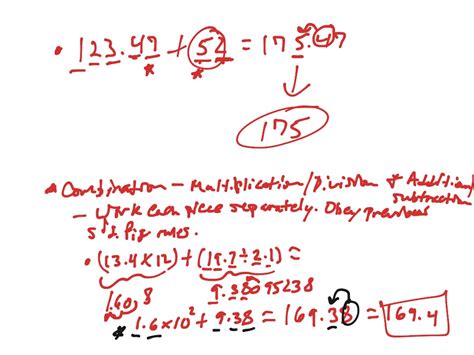 • 123.47 + 52 = 175.47
↓
175
Combination – Multiplication/Division & Addition/Subtraction
– Work each piece separately. Obey previous
sig fig rules.
• (13.4 × 12) + (19.7 ÷ 2.1) =
160.8 9.38095238
* 1.6×10² + 9.38 = 169.38 = 169.4